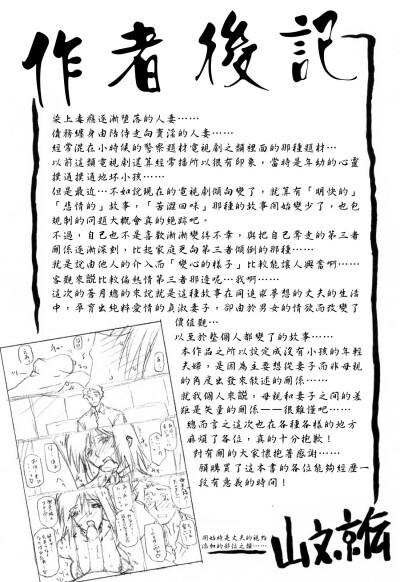 作者後記
染上毒癮逐漸墮落的人妻……
債務纏身由陪侍走向賣淫的人妻……
經常混在小時候的警察題材電視劇之類裡面的那種題材…
以前這類電視劇還算經常播所以很有印象，當時是年幼的心靈
撲通撲通地坏小孩……
但是最近…不如說現在的電視劇傾向變了，就算有「明快的」
「悲情的」故事，「苦澀回味」那種的故事開始變少了，也包
規制的問題大概會真的絕跡吧。
不過，自己也不是喜歡漸漸變得不幸，與把自己奪走的第三者
關係逐漸深刻，比起家庭更向第三者傾倒的那種……
就是說由他人的介入而「變心的樣子」比較能讓人興奮啊……
客觀來說比較偏熱情第三者那邊呢…我啊……
這次的蒼月總的來說就是這種故事在同追求夢想的丈夫的生活
中，孕育出純粹愛情的貞淑妻子，卻由於男女的情欲而改變了
價值觀…
以至於整個人都變了的故事……
本作品之所以設定成沒有小孩的年輕
夫婦，是因為主要想從妻子而非母親
的角度出發來敘述的關係……
就我個人來說，母親和妻子之間的差
距是矢量的關係——很難懂吧……
總而言之這次也在各種各樣的地方
麻煩了各位，真的十分抱歉！
對有關的大家懷抱著感謝……
願購買了這本書的各位能夠經歷一
段有意義的時間！
開始時是丈夫的視點
添加的部位之類……
山文京伝